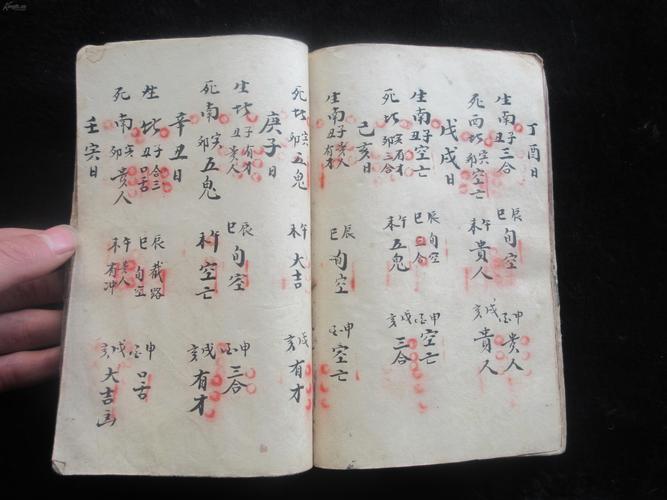 丁酉日
生南子丑三合 辰巳旬空 申酉貴人
死西北寅卯空亡 午未貴人 戌亥貴人
戊戌日
生南子丑空亡 辰巳旬空三合 申酉空亡
死北寅卯有才三合 午未五鬼 戌亥三合
己亥日
生南子丑貴人有才 辰巳旬空 申酉空亡
死北寅卯五鬼 午未大吉 戌亥有才
庚子日
生北子丑有才貴人 辰巳旬空 申酉三合
死南寅卯五鬼 午未空亡 戌亥有才
辛丑日
生北子丑合三口舌 辰巳截路旬空 申酉口舌
死南寅卯貴人 午未貴人有冲 戌亥大吉
壬寅日